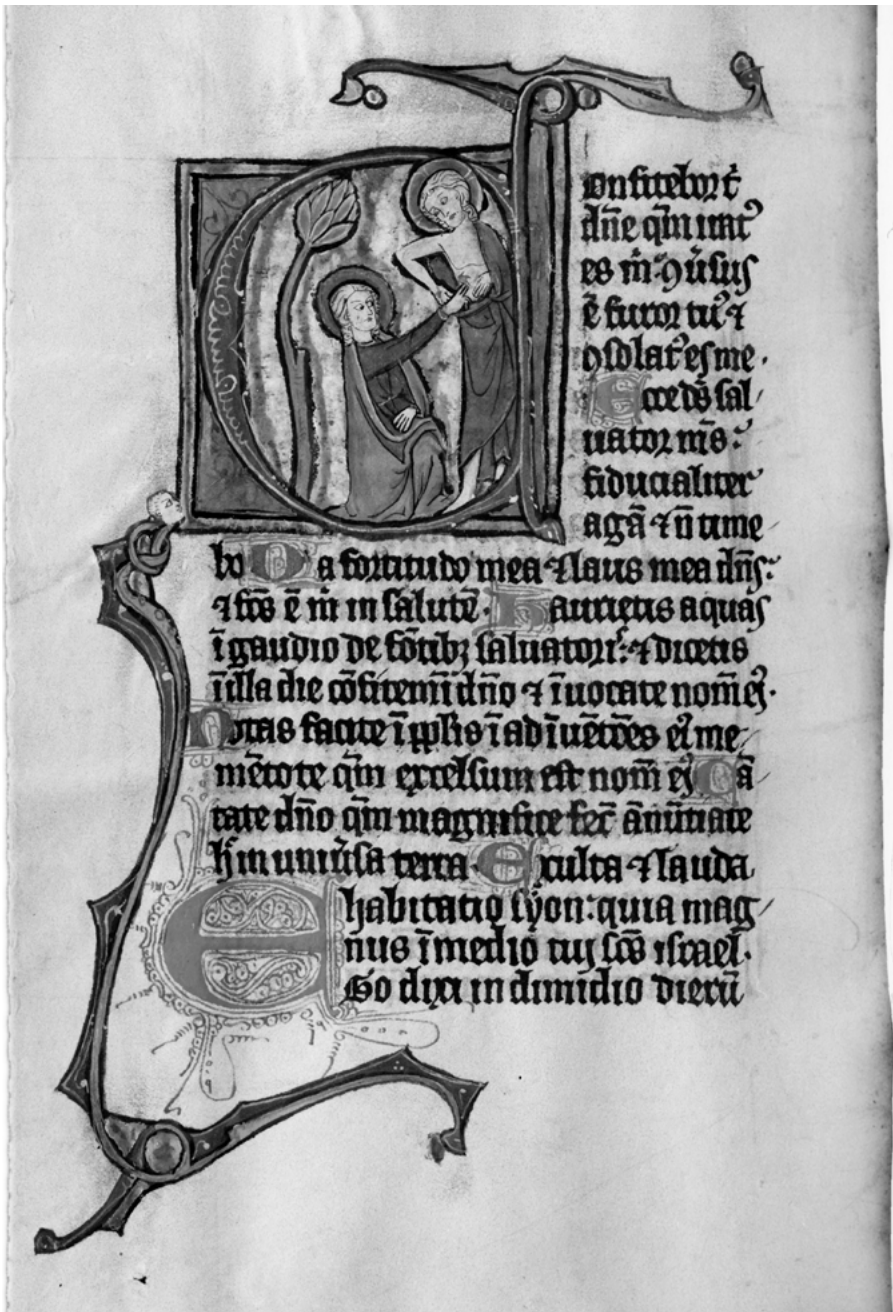 Onfitebor t̃
dñe qm̃ irat᾽
es m̃ ꝯũsus
ẽ furor tu᾽ ⁊
ꝯsolat᾽ es me.
Ecce ds̃ sal
uator mẽs:
fiducialiter
agã ⁊ ñ time
bo Qa fortitudo mea ⁊ laus mea dñs:
⁊ fc̃s ẽ m̃ in salutẽ. Haurietis aquas
ĩ gaudio de fõtibꝫ saluatoris: ⁊ dicetis
ĩ illa die cõfitemĩ dño ⁊ ĩuocate nom̃ eꝰ.
Notas facite ĩ pp̃lis ĩ adĩuẽtc̃oes eꝰ me
mẽtote qm̃ excelsum est nom̃ eꝰ Cã
tate dño qm̃ magnifice fec̃ ãnũtiate
h̃ in uniũsa terra. Exulta ⁊ lauda
habitatio syon: quia mag
ñus ĩ medio tui sc̃s israel.
Ego dixi in dimidio dierũ